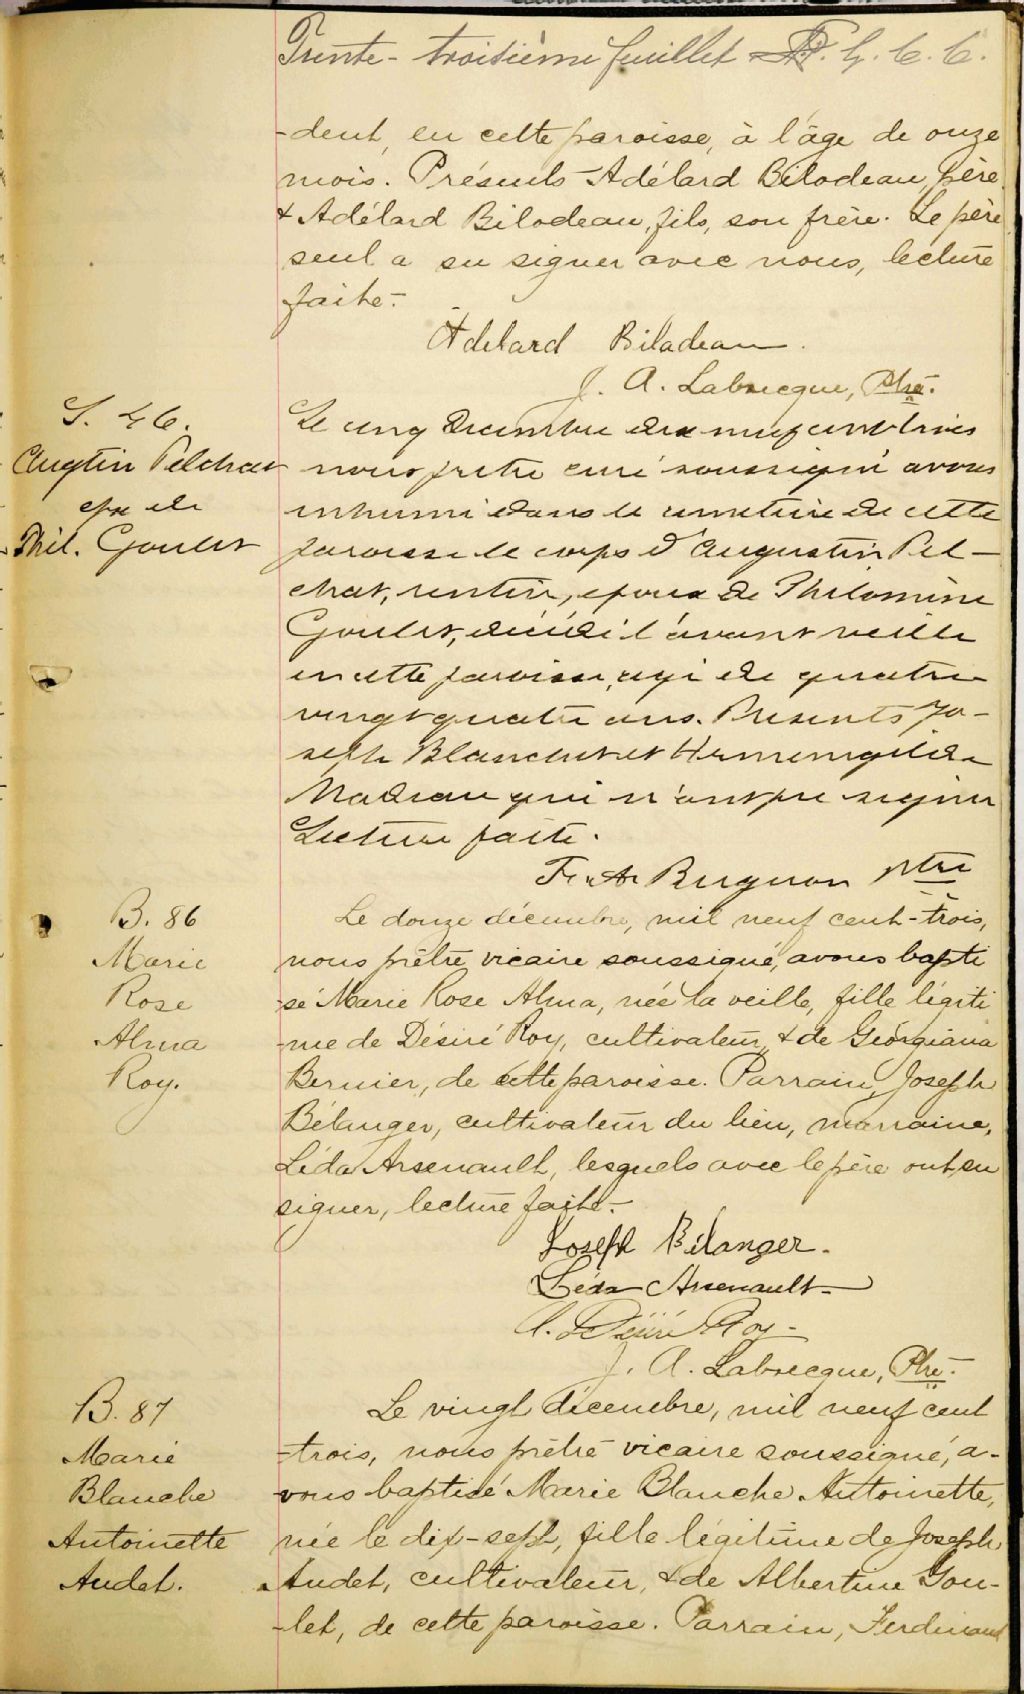 Trente-troisième feuillet G. C. C.
-dent, en cette paroisse, à l'âge de onze
mois. Présents Adélard Bilodeau, père
& Adélard Bilodeau, fils, son frère. Le père
seul a su signer avec nous, lecture
faite.-
Adelard Biladeau.
J. A. Labrecque, Ptre.
S. 46.
Augtin Pelchat
epx de
Phil. Goulet
Le cinq Decembre dix neuf cent trois
nous pretre curé soussigné avons
inhumé dans le cimetière de cette
paroisse le corps d'Augustin Pel-
chat, rentier, epoux de Philomène
Goulet, décédé l'avant veille
en cette paroisse, agé de quatre
vingt quatre ans. Presents Jo-
seph Blanchet et Hermenegilde
Nadeau qui n'ont pu signer
Lecture faite.
ptre
B. 86
Marie
Rose
Alma
Roy.
Le douze décembre, mil neuf cent-trois,
nous prêtre vicaire soussigné, avons bapti
-sé Marie Rose Alma, née la veille, fille légiti
-me de Désiré Roy, cultivateur, & de Géorgiana
Bernier, de cette paroisse. Parrain, Joseph
Bélanger, cultivateur du lieu, marraine,
Léda Arsenault, lesquels avec le père ont su
signer, lecture faite.-
Joseph Bélanger.
Léda Arsenault
A. Désiré Roy-
J. A. Labrecque, Ptre.
B. 87
Marie
Blanche
Antoinette
Audet.
Le vingt décembre, mil neuf cent
-trois, nous prêtre vicaire soussigné, a-
-vons baptisé Marie Blanche Antoinette,
née le dix-sept, fille légitime de Joseph
Audet, cultivateur, & de Albertine Gou-
-let, de cette paroisse. Parrain, Ferdinand